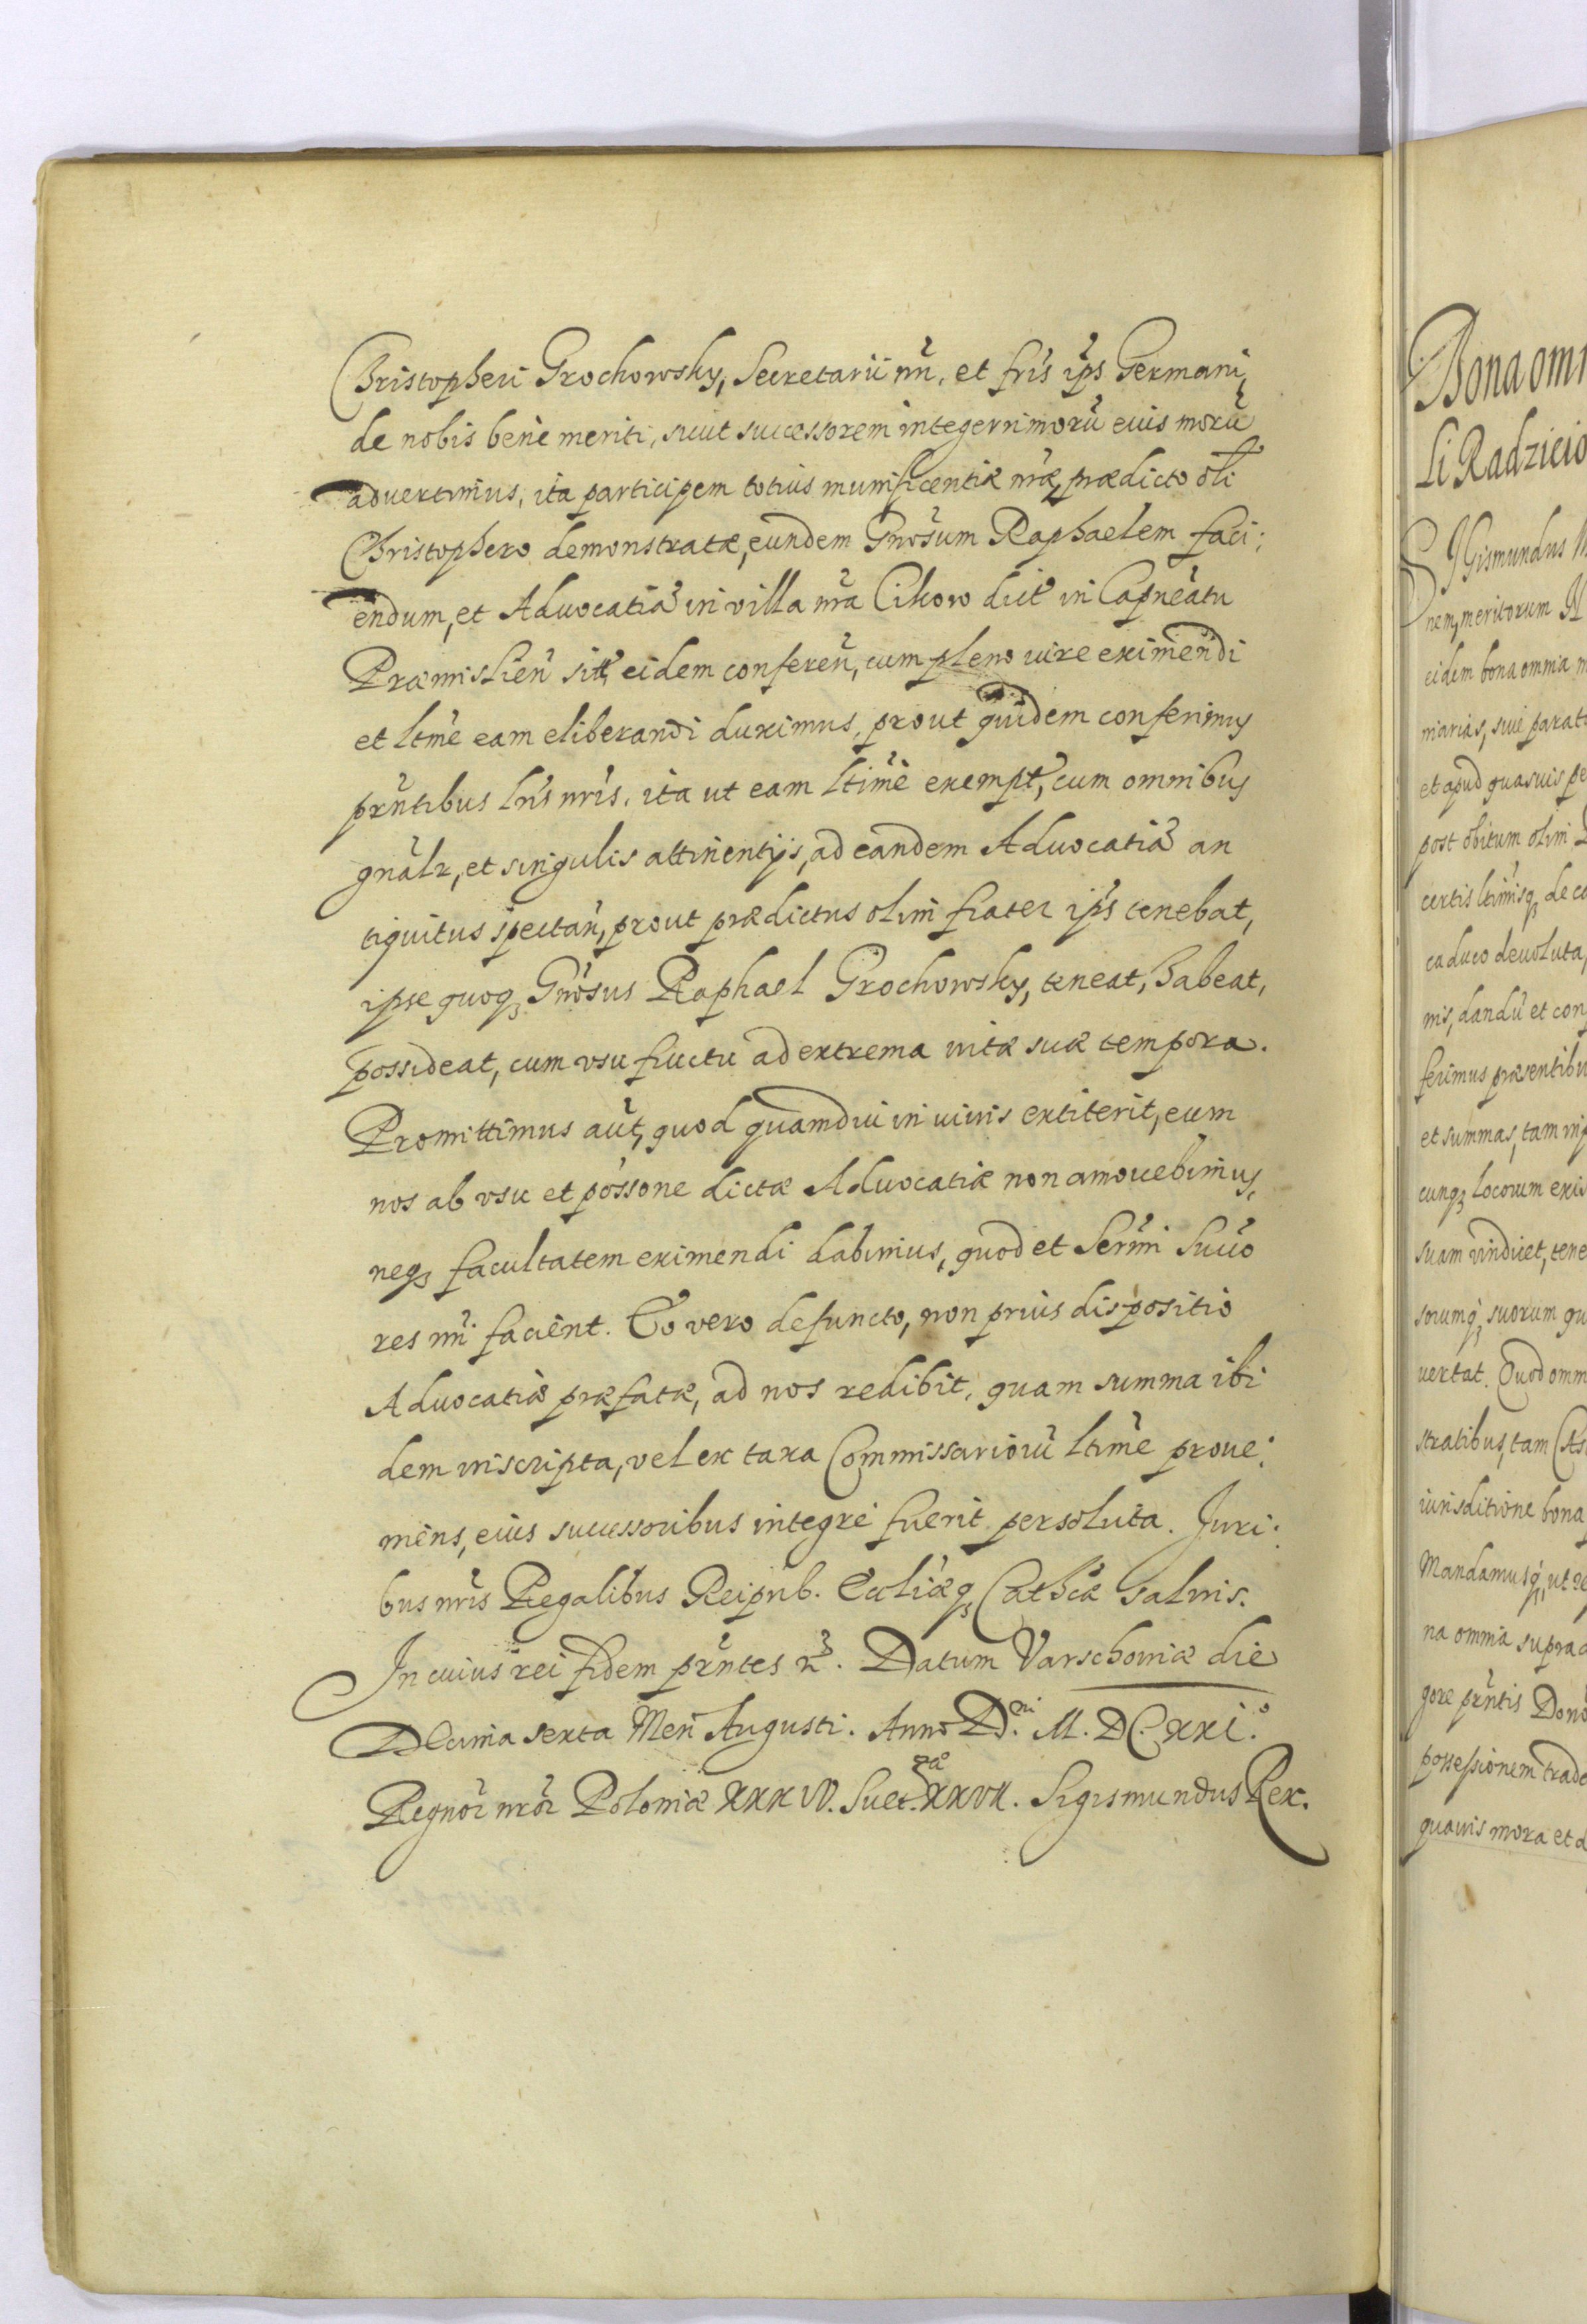 Christopheri Grochowsky, Secretarii nr̃i, et fr̃is ip̃s Germani,
de nobis bene meriti, sicut successorem integerrimorũ eius morũ
advertimus, ita participem totius munificentiæ nr̃æ, prædicto oli͂
Christophero demonstratæ, eundem Gñosum Raphaelem faci:
endum, et Advocatiã in villa nr̃a Cikow dict̃ in Capneãtu
Præmislien̄ sit̃, eidem conferen̄, cum pleno iure eximendi
et ltm̃e eam eliberandi duximus, prout quidem conferimus
prñtibus lr̃is nr̃is, ita ut eam ltim̃e exempt̃, cum omnibus
gnãlr, et singulis attinentijs, ad eandem Advocatiã an
tiquitus spectan̄, prout prædictus olim frater ip̃s tenebat,
ipse quoqȝ Gñosus Raphael Grochowsky, teneat, habeat,
possideat, cum vsu fructu ad extrema vitæ suæ tempora.
Promittimus aũt, quod quamdiu in vivis extiterit, eum
nos ab vsu et põssone dictæ Advocatiæ non amovebimus,
neqȝ facultatem eximendi dabimus, quod et Serm̃i Succ̃o
res nr̃i facient. Eo vero defuncto, non prius dispositio
Advocatiæ præfatæ, ad nos redibit, quam summa ibi
dem inscripta, vel ex taxa Commissariorũ ltim̃e prove:
niens, eius successoribus integre fuerit persoluta. Juri:
bus nr̃is Regalibus Reipub. Eccliæ̃qȝ Cathcæ̃ salvis.
In cuius rei fidem prñtes r̃. Datum Varschoviæ die
Decima sexta Men̄ Augusti. Anno D.ni M. DC. XXI.o
Regnor̃ nrõr Poloniæ XXXIV. Suet.æ XXVII. Sigismundus Rex.
Bona omn
li Radzicio
SIGismundus
nem, meritorum
eidem bona omnia m
niarias, sive parat
et apud quasvis pe
post obitum olim
certis ltim̃isqȝ de ca
caduco devoluta,
nis, dandũ et con
ferimus præsentibu
et summas, tam inp
cunqȝ locorum exis
suam vindicet, tene
sorumqȝ suorum qu
vertat. Quod omn
stratibus, tam Cas
iurisditione bona
Mandamusqȝ, ut
na omnia supra
gore prñtis Donõ
possessionem trade
quavis mora et d